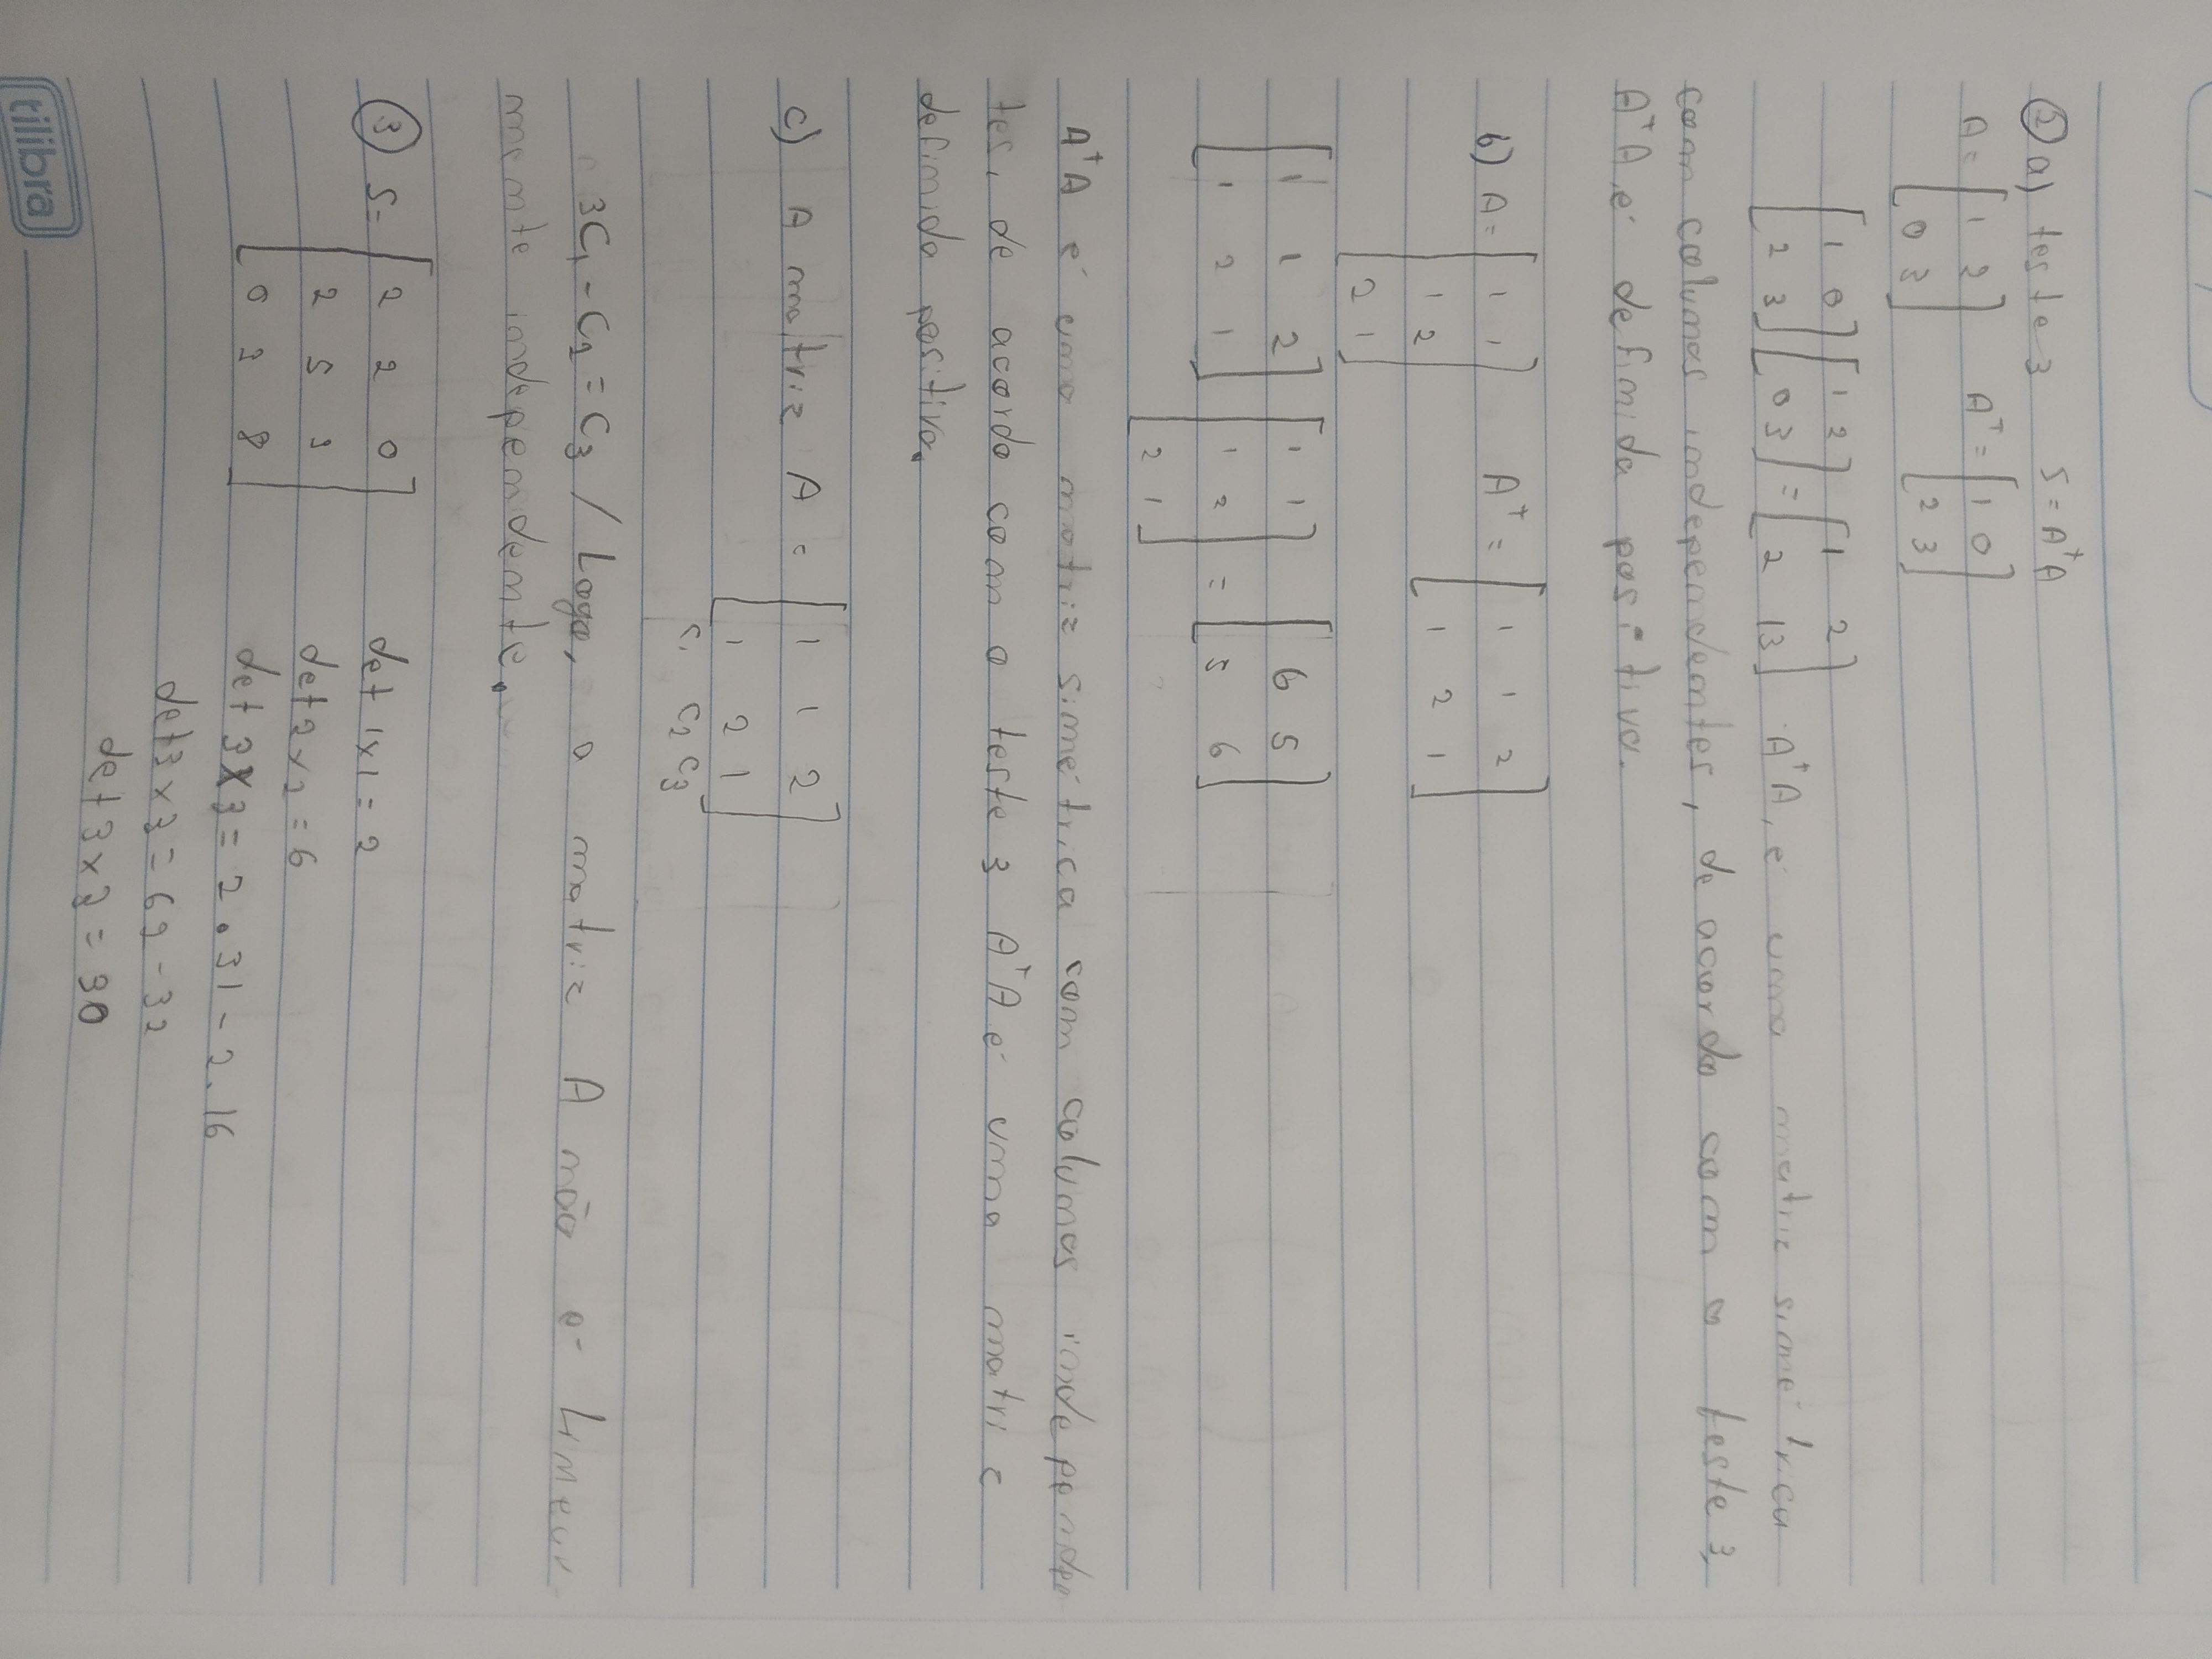 ② a) teste 3 S = AᵀA
A = [ 1 2 ] Aᵀ = [ 1 0 ]
[ 0 3 ] [ 2 3 ]
[ 1 0 ] [ 1 2 ] = [ 1 2 ]
[ 2 3 ] [ 0 3 ] [ 2 13 ] AᵀA, é uma matriz simétrica
com colunas independentes, de acordo com o teste 3,
AᵀA, é definida positiva.
b) A = [ 1 1 ] Aᵀ = [ 1 1 2 ]
[ 1 2 ] [ 1 2 1 ]
[ 2 1 ]
[ 1 1 2 ] [ 1 1 ] = [ 6 5 ]
[ 1 2 1 ] [ 1 2 ] [ 5 6 ]
[ 2 1 ]
AᵀA é uma matriz simétrica com colunas independen
tes, de acordo com o teste 3 AᵀA é uma matriz
definida positiva.
c) A matriz A = [ 1 1 2 ]
[ 1 2 1 ]
C1 C2 C3
3C1 - C2 = C3 / Logo, a matriz A não é Linear
mente independente.
③ S = [ 2 2 0 ] det 1x1 = 2
[ 2 5 3 ] det 2x2 = 6
[ 0 3 8 ] det 3x3 = 2.31 - 2.16
det 3x3 = 62 - 32
det 3x3 = 30
tilibra